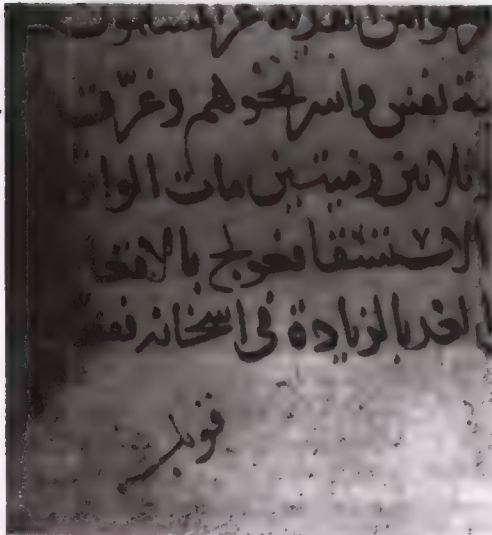 نفس واسر نحوهم وغرّق
ثلاثين وميتين مات الوا
الاستسقا فعولج بالاقعا
لغد بالزيادة في اسخانه ففعـ
قوبل